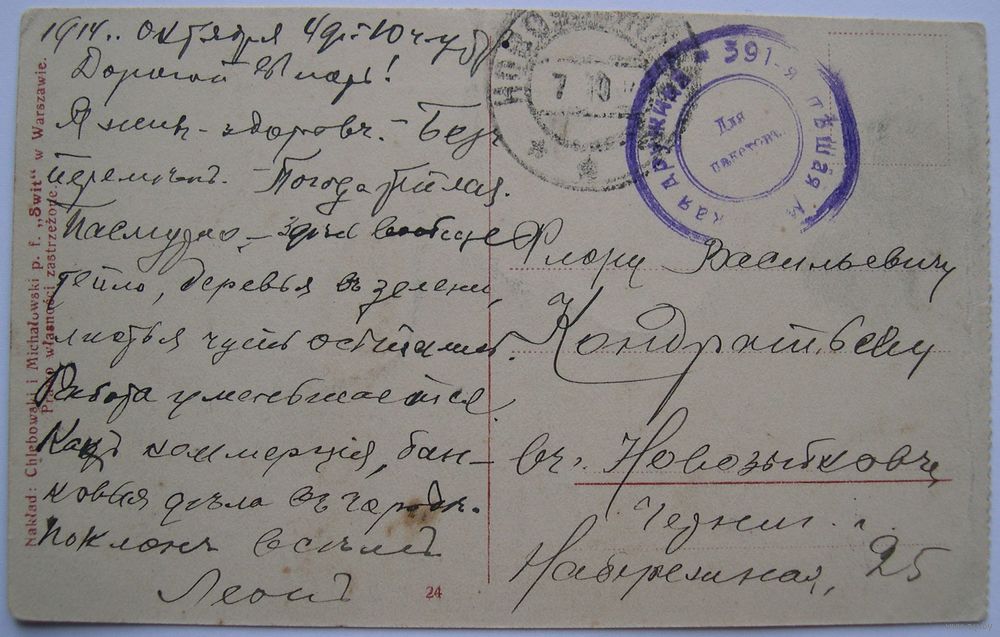 1914. октября 4 дня 10 ч. у
Дорогой
Я жив - здоровъ. - Безъ
перемѣнъ. - Погода
Пасмурно, - здѣсь вообще
тепло, деревья въ зелени,
листья чуть
Работа уменьшается.
Какъ коммерція, бан-
ковыя дѣла въ городѣ.
Поклонъ всѣмъ
Леонъ
Nakład: Chlebowski i Michałowski p. f. „Swit" w Warszawie.
Prawo własności zastrzeżone.
24
НОВОЗЫ
7 10
КАЯ ДРУЖИНА * 391-я ПѢШАЯ
Для
пакетовъ
Флору Васильевичу
Кондратьеву
въ г. Новозыбковъ,
Черниг. г.
Набережная, 25